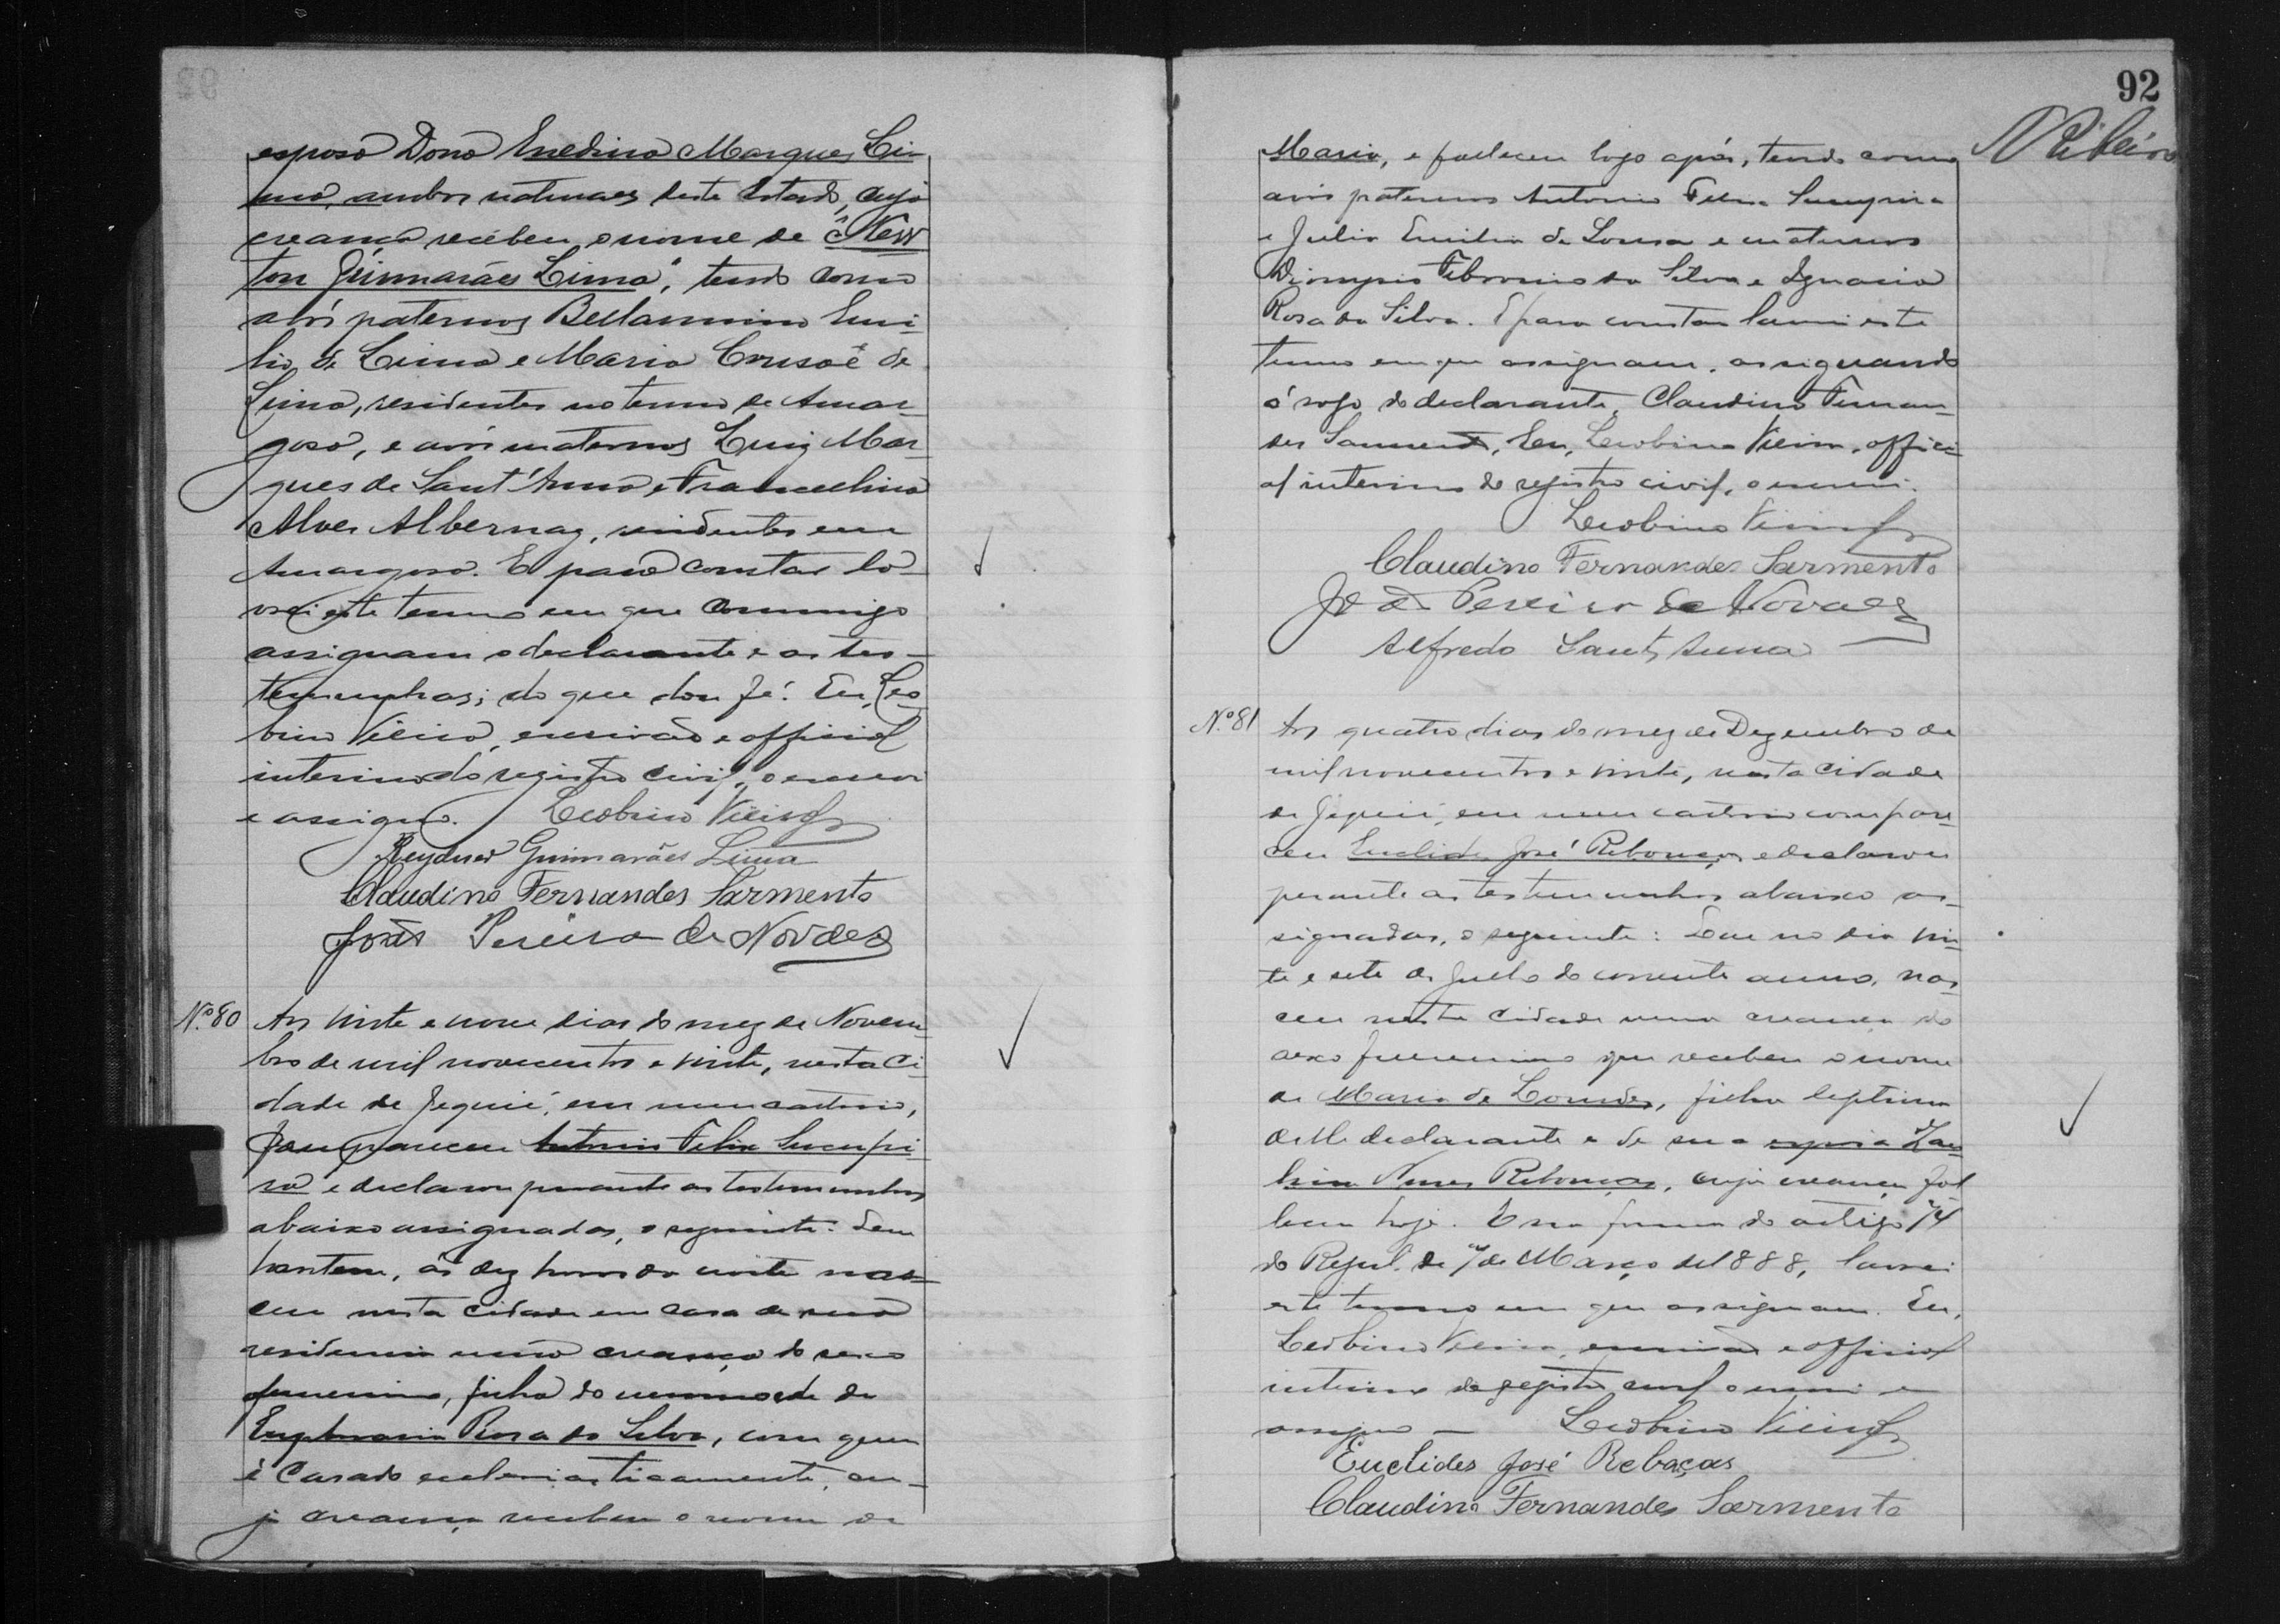 esposa Dona Enedina Marques Li-
ma, ambos naturaes deste Estado, cuja
creança recebeu o nome de "New
ton Guimarães Lima", tendo como
avós paternos Bellarmino Emi-
lio de Lima e Maria Crusoé de
Lima, residentes no termo de Amar-
gosa, e avós maternos Luiz Mar-
ques de Sant'Anna e Francelina
Alves Albernaz, residentes em
Amargosa. E para constar la-
vrei este termo em que commigo
assignam o declarante e as tes-
temunhas; do que dou fé. Eu, Leo-
bino Vieira, escrivão e official
interino do registro civil, o escrevi
e assigno. Leobino Vieira
Guimarães Lima
Claudino Fernandes Sarmento
João Pereira de Novaes
Nº 80 Aos vinte e nove dias do mez de Novem-
bro de mil novecentos e vinte, nesta Ci-
dade de Jequié, em meu cartorio,
compareceu Antonio Felix Sucupi-
ra e declarou perante as testemunhas
abaixo assignadas, o seguinte: Que
hontem, ás dez horas da noite nas-
ceu nesta cidade em casa de sua
residencia uma creança do sexo
femenino, filha do mesmo e de
Euphrasia Rosa da Silva, com quem
é casado ecclesiasticamente, cu-
ja creança recebeu o nome de
92
Ribeiro
Maria, e falleceu logo após, tendo como
avós paternos Antonio Felix Sucupira
e Julia Emilia de Sousa e maternos
Dionysio Febronio da Silva e Ignacia
Rosa da Silva. E para constar lavrei este
termo em que assignam, assignando
á rogo do declarante, Claudino Fernan-
des Sarmento, Eu, Leobino Vieira, offici-
al interino do registro civil, o escrevi.
Leobino Vieira
Claudino Fernandes Sarmento
João Pereira de Novaes
Alfredo Sant'Anna
Nº 81 Aos quatro dias do mez de Dezembro de
mil novecentos e vinte, nesta Cidade
de Jequié, em meu cartorio compare-
ceu Euclides José Rebouças e declarou
perante as testemunhas abaixo as-
signadas, o seguinte: Que no dia vin-
te e sete de Julho do corrente anno, nas-
ceu nesta Cidade uma creança do
sexo femenino que recebeu o nome
de Maria de Lourdes, filha legitima
delle declarante e de sua esposa
Rebouças, cuja creança fal
leceu hoje. E na forma do artigo 74
do Regul. de 7 de Março de 1888, lavrei
este termo em que assignam. Eu,
Leobino Vieira, escrivão e official
interino do registro civil o escrevi e
assigno — Leobino Vieira
Euclides José Rebaças
Claudino Fernandes Sarmento